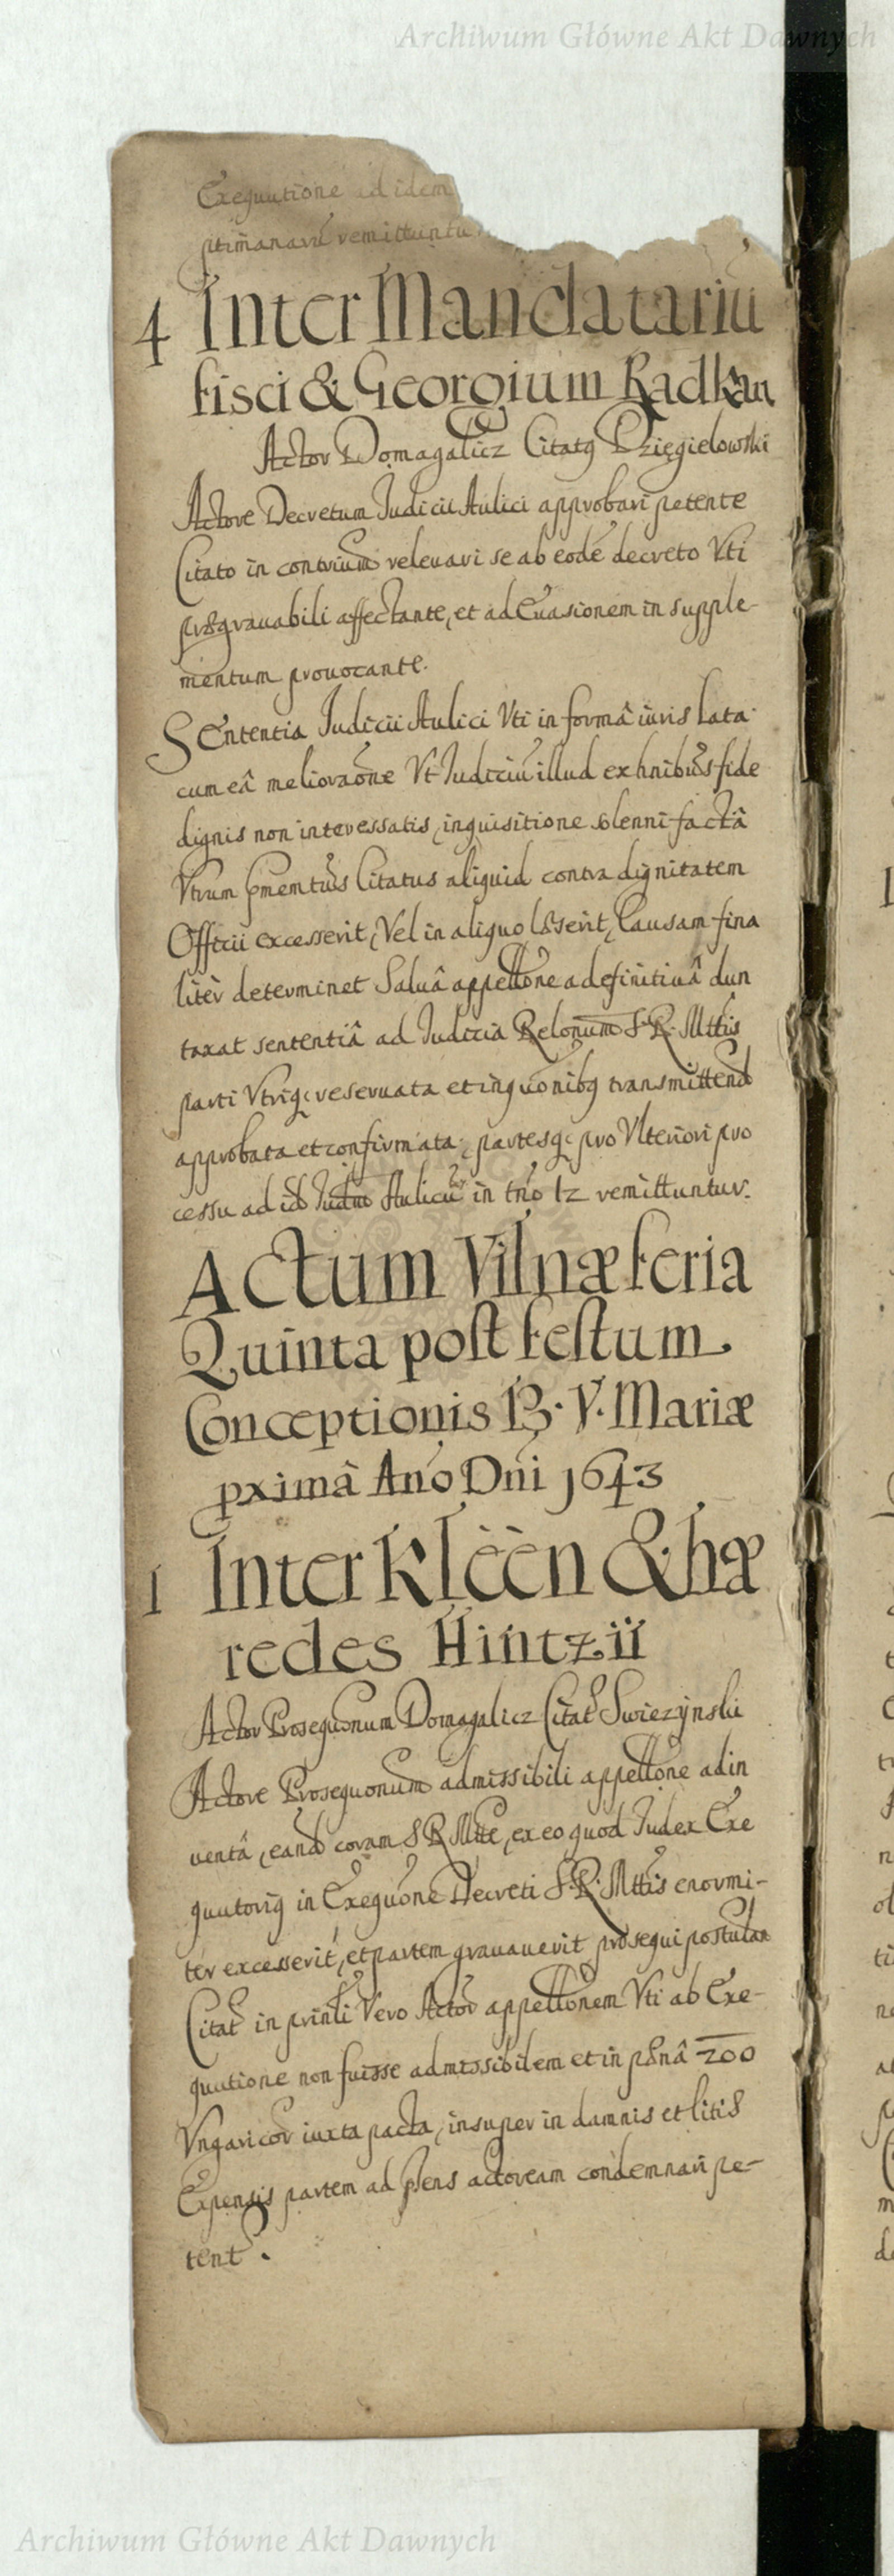 Archiwum Główne Akt Dawnych
Exequutione ad idem
ptimanarũ remittuntu
4 Inter Mandatariũ
fisci & Georgium Radkan
Actor Domagalicz Citatꝯ Dzięgielowski
Actore Decretum Judicii Aulici approbari petente
Citato in contrium relevari se ab eodẽ decreto Vti
prægravabili affectante, et ad Evasionem in supple-
mentum provocante.
Sententia Judicii Aulici Vti in formâ iuris lata
cum eâ melioraõne Vt Judiciũ illud ex hnibus fide
dignis non interessatis, inquisitione solenni factâ
Vtrum pmentus Citatus aliquid contra dignitatem
Officii excesserit, Vel in aliquo læserit, Causam fina
litèr determinet Salvâ appellõne a definitivâ dun
taxat sententiâ ad Judicia Relonum S. R. Mttis
parti Vtriq; reservata et inquõnibꝯ transmittend
approbata et confirmata, partesq; pro Vlteriori pro
cessu ad id Judm Aulicũ in tn̄o 12 remittuntur.
Actum Vilnæ feria
Quinta post festum
Conceptionis B. V. Mariæ
pximâ Año Dñi 1643
1 Inter Klèèn & hæ
redes Hintzii
Actor Prosequonum Domagalicz Citat Swiezÿnski
Actore Prosequonum admissibili appellõne ad in
ventâ, eand coram S R Mtte, ex eo quod Judex Exe
quutoriꝯ in Exequõne Decreti S. R. Mttis enormi-
ter excesserit, et partem gravaverit prosequi postulan
Citat in prinli Vero Actor appellõnem Vti ab Exe-
quutione non fuisse admissibilem et in pænâ 200
Vngaricor iuxta pacta, insuper in damnis et litis
Expensis partem ad pñens actoream condemnari pe-
tent.
Archiwum Główne Akt Dawnych